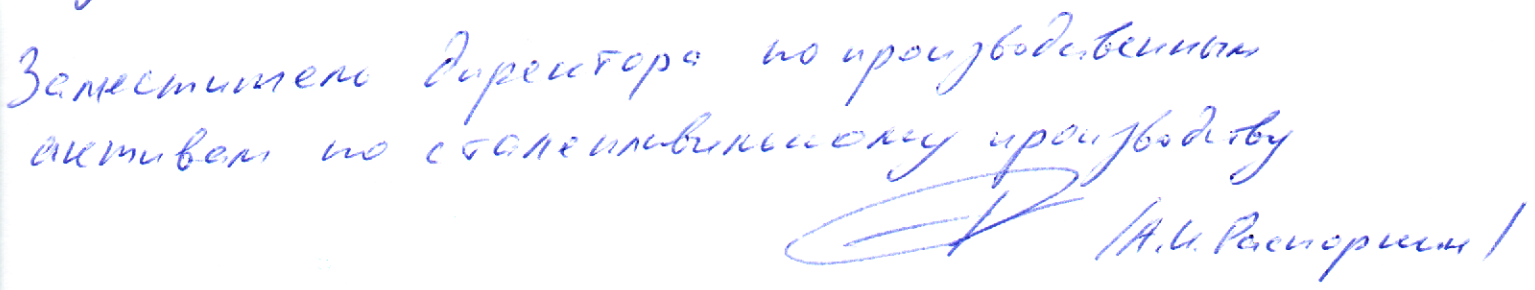 Заместитель директора по производственным
активам по сталеплавильному производству
/А.И. Распоркин/